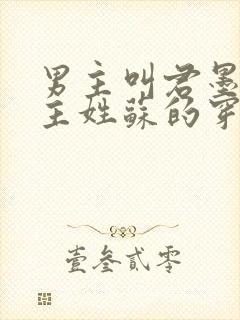 男主叫君墨
主姓蘇的穿
壹叁贰零